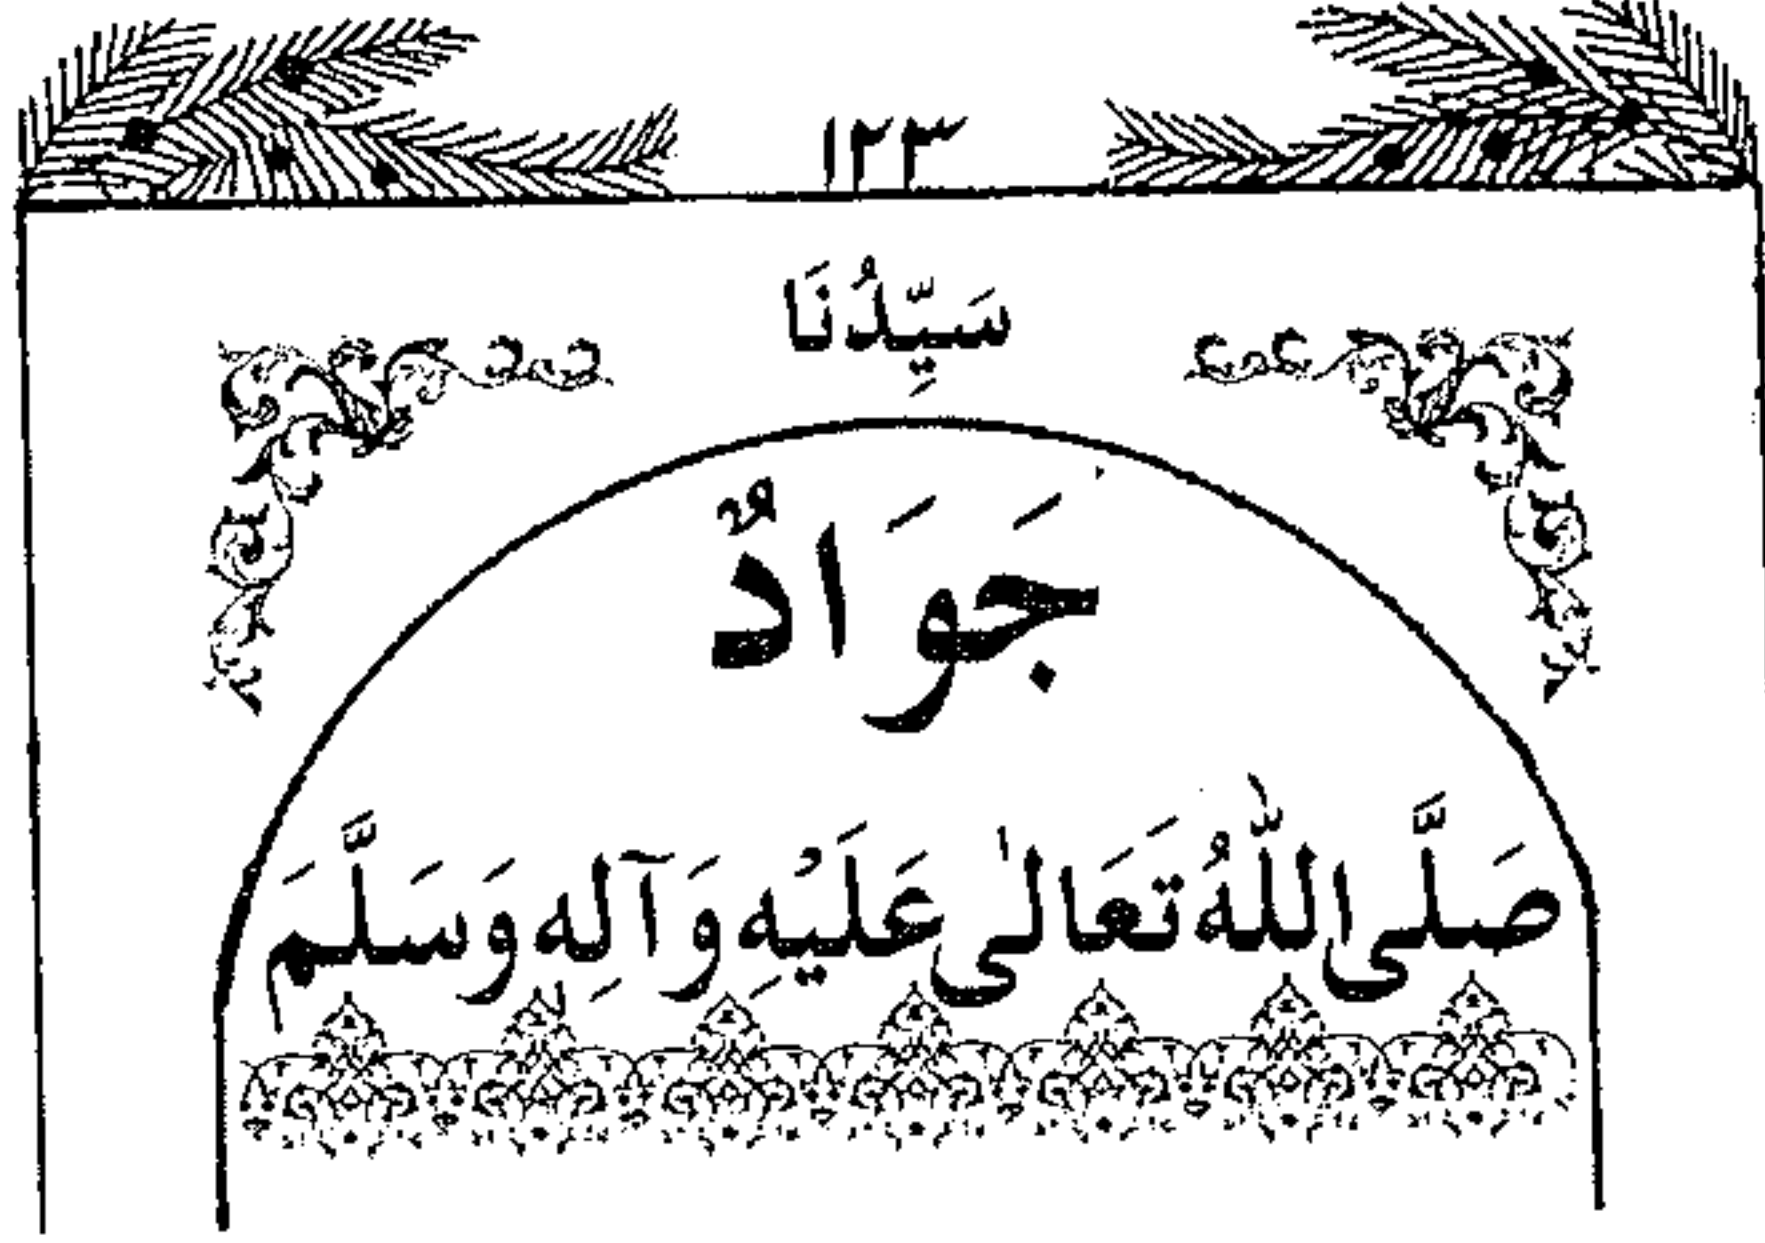 ١٢٣
سَيِّدُنَا
جَوَادٌ
صَلَّى اللّٰهُ تَعَالٰى عَلَيْهِ وَآلِهٖ وَسَلَّمَ